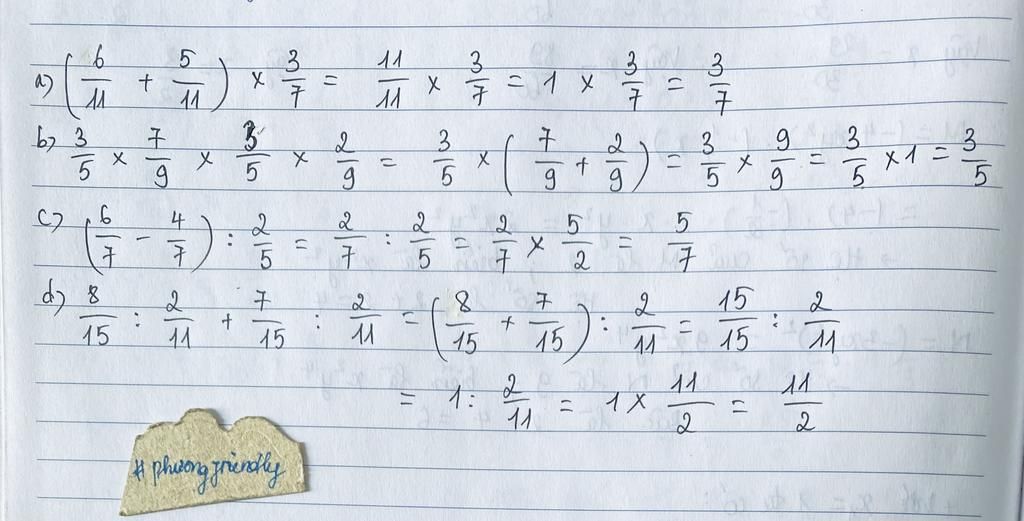 a) (6/11 + 5/11) × 3/7 = 11/11 × 3/7 = 1 × 3/7 = 3/7
b) 3/5 × 7/9 × 3/5 × 2/9 = 3/5 × (7/9 + 2/9) = 3/5 × 9/9 = 3/5 × 1 = 3/5
c) (6/7 - 4/7) : 2/5 = 2/7 : 2/5 = 2/7 × 5/2 = 5/7
d) 8/15 : 2/11 + 7/15 : 2/11 = (8/15 + 7/15) : 2/11 = 15/15 : 2/11
= 1 : 2/11 = 1 × 11/2 = 11/2
# phuongfriendly